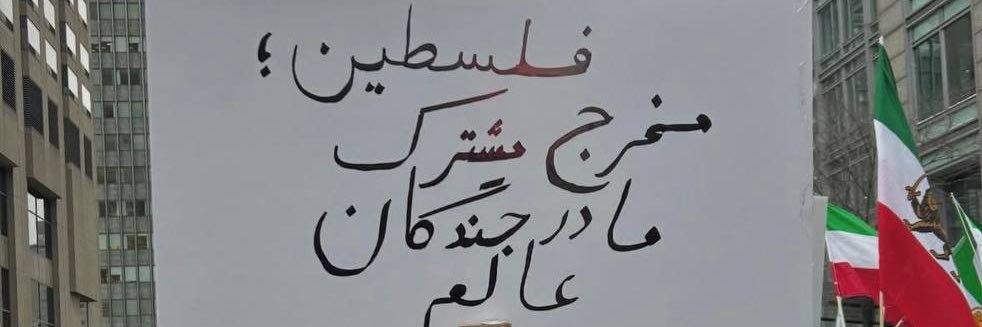 فلسطین؛
مخرج مشترک
مادرجندگان
عالم